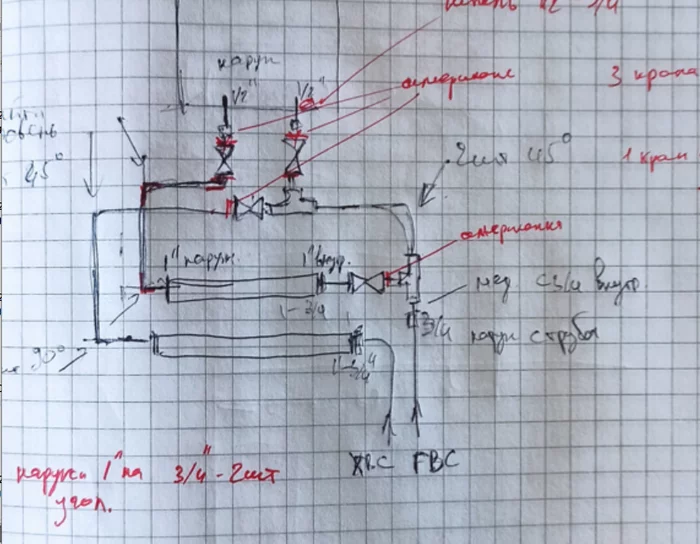 3/4
наруж
1/2"
1/2"
американк
3 крана
45°
2шт 45°
1 кран
американка
1" наруж.
1" внутр.
1-3/4
мед с 3/4 внутр.
3/4 наруж с трубы
90°
1"-3/4"
ХВС ГВС
наружн 1" на 3/4" - 2шт
угол.